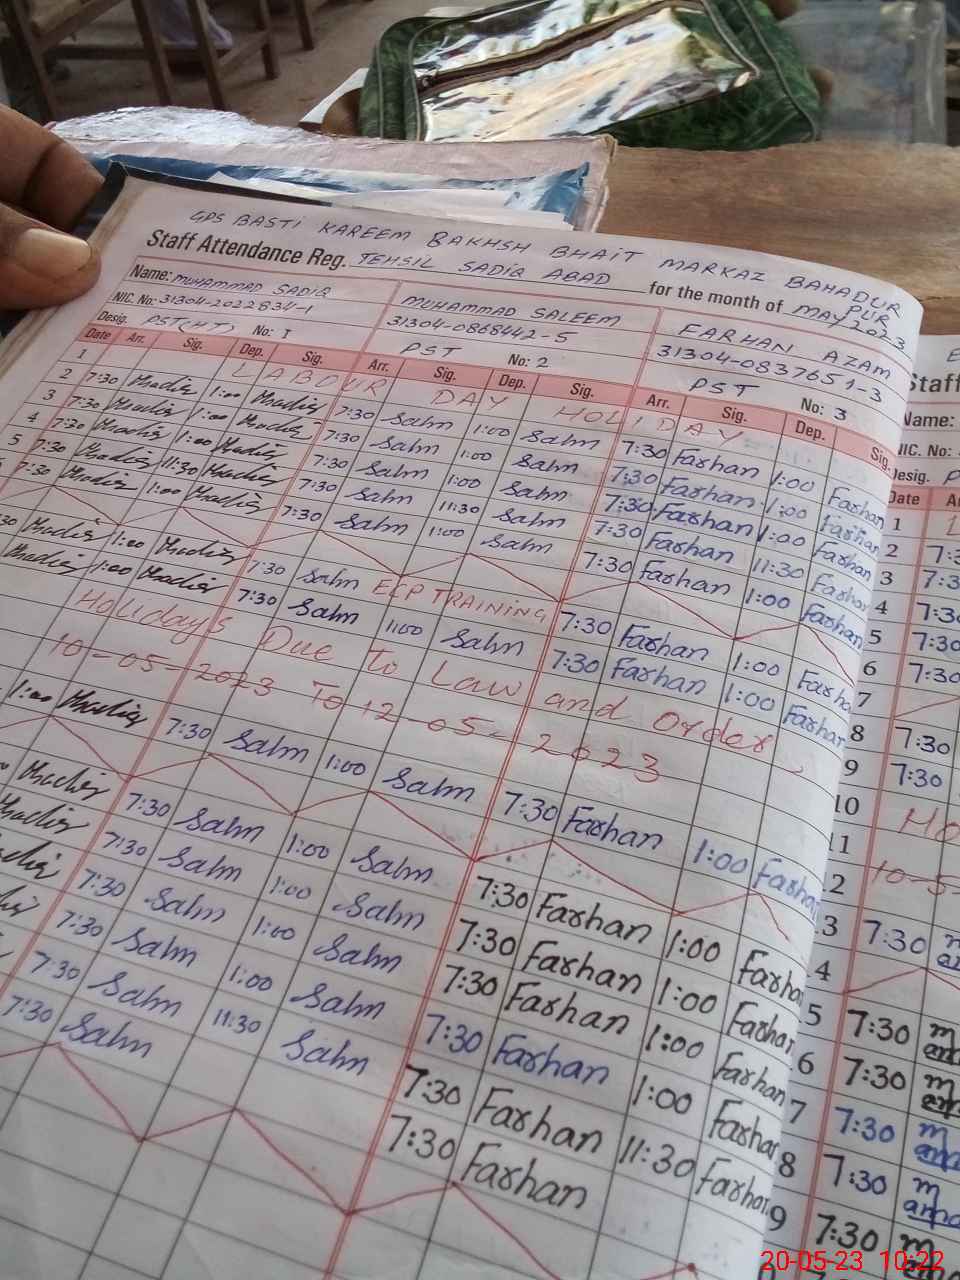 GPS BASTI KAREEM BAKHSH BHAIT MARKAZ BAHADUR PUR
Staff Attendance Reg. TEHSIL SADIQ ABAD for the month of MAY 2023
Name: MUHAMMAD SADIQ MUHAMMAD SALEEM FARHAN AZAM
NIC. No: 31304-2022834-1 31304-0868442-5 31304-0837651-3
Desig. PST(HT) No: 1 PST No: 2 PST No: 3
Date Arr. Sig. Dep. Sig. Arr. Sig. Dep. Sig. Arr. Sig. Dep. Sig.
1 LABOUR DAY HOLIDAY
2 7:30 1:00 7:30 Salm 1:00 Salm 7:30 Farhan 1:00 Farhan
3 7:30 1:00 7:30 Salm 1:00 Salm 7:30 Farhan 1:00 Farhan
4 7:30 1:00 7:30 Salm 1:00 Salm 7:30 Farhan 1:00 Farhan
5 7:30 11:30 7:30 Salm 11:30 Salm 7:30 Farhan 11:30 Farhan
7:30 1:00 7:30 Salm 1:00 Salm 7:30 Farhan 1:00 Farhan
:30 1:00 7:30 Salm ECP TRAINING 7:30 Farhan 1:00 Farhan
1:00 7:30 Salm 1:00 Salm 7:30 Farhan 1:00 Farhan
Holidays Due to Law and Order
10-05-2023 To 12-05-2023
1:00 7:30 Salm 1:00 Salm 7:30 Farhan 1:00 Farhan
7:30 Salm 1:00 Salm 7:30 Farhan 1:00 Farhan
7:30 Salm 1:00 Salm 7:30 Farhan 1:00 Farhan
7:30 Salm 1:00 Salm 7:30 Farhan 1:00 Farhan
7:30 Salm 1:00 Salm 7:30 Farhan 1:00 Farhan
7:30 Salm 11:30 Salm 7:30 Farhan 11:30 Farhan
7:30 Salm 7:30 Farhan
Staff
Name:
NIC. No:
Desig.
Date
1
2 7:3
3 7:3
4 7:30
5 7:30
6 7:30
7
8 7:30
9 7:30
10 Ho
11
2 10-5-
3 7:30
4
5 7:30
6 7:30
7 7:30
8 7:30
9 7:30
20-05-23 10:22